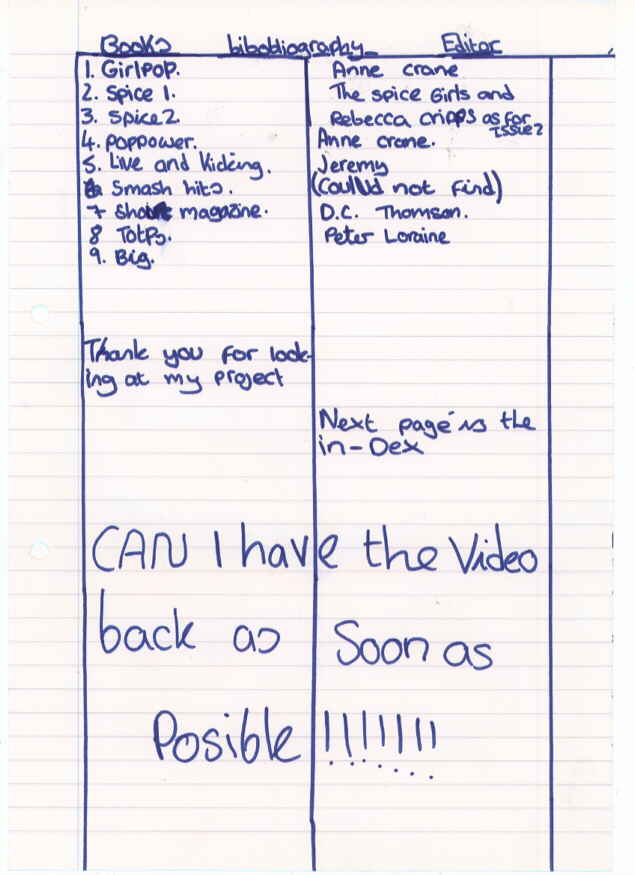 Books bibobliography Editor
1. Girlpop. Anne crane
2. Spice 1. The spice Girls and
3. Spice2. Rebecca cripps as for issue2
4. poppower. Anne crane.
5. Live and Kicking. Jeremy
6 Smash hits. (Could not find)
7 magazine. D.C. Thomson.
8 TotPs. Peter Loraine
9. Big.
Thank you for look-
ing at my project
Next page is the
in-Dex
CAN I have the Video
back as Soon as
Posible !!!!!!!